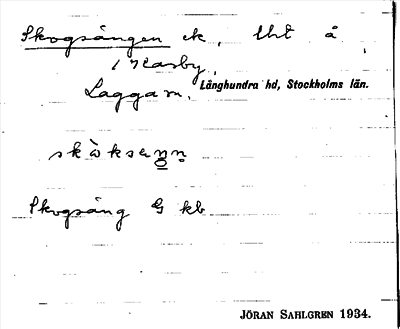 Skogsängen ek, lht å
1 Kasby,
Långhundra hd, Stockholms län.
Lagga sn.
Skogsäng G kb
JÖRAN SAHLGREN 1934.